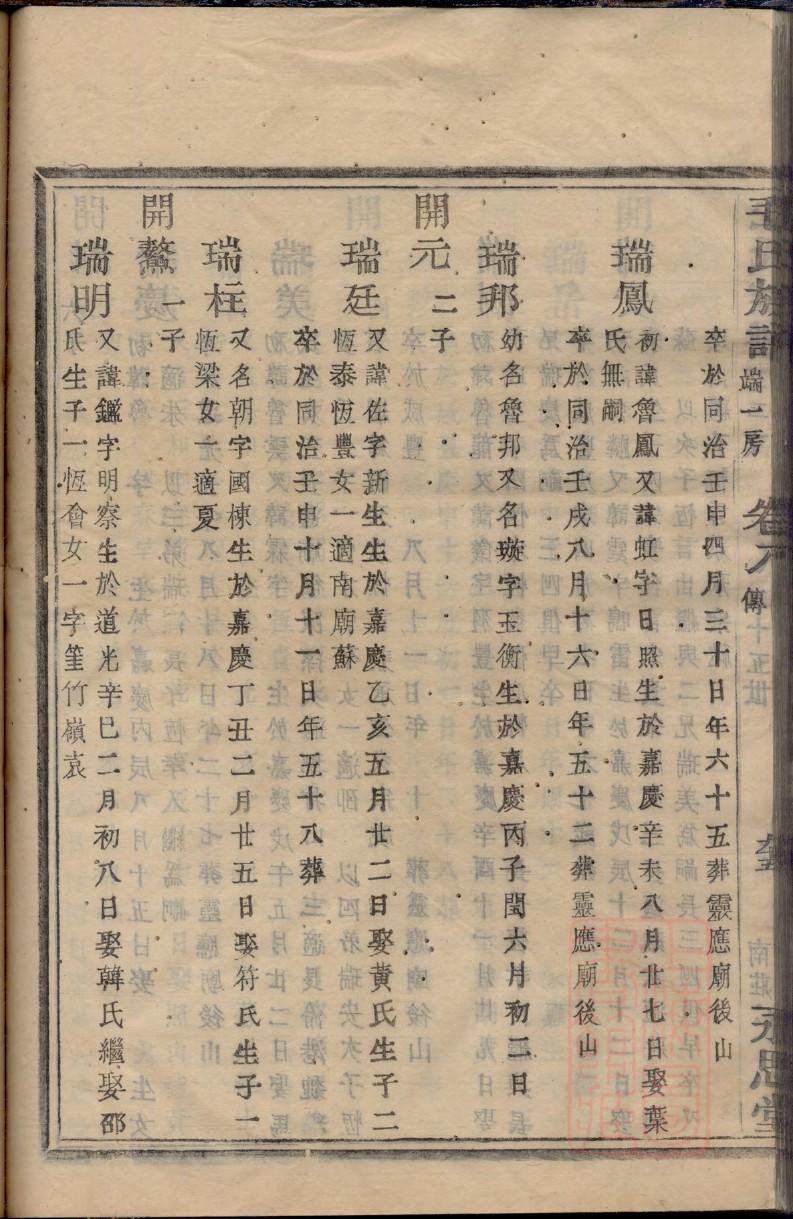 毛氏族譜 端一房 卷八 傳 十五世 南莊 永思堂
卒於同治壬申四月三十日年六十五葬靈應廟後山
瑞鳳
初諱魯鳳又諱虹字日照生於嘉慶辛未八月廿七日娶葉
氏無嗣
卒於同治壬戌八月十六日年五十二葬靈應廟後山
瑞邦
幼名魯邦又名璇字玉衡生於嘉慶丙子閏六月初二日
開元 二子
瑞廷
又諱佐字新生生於嘉慶乙亥五月廿二日娶黃氏生子二
恆泰恆豐女一適南廟蘇
卒於同治壬申十月十一日年五十八葬
瑞柱
又名朝字國棟生於嘉慶丁丑二月廿五日娶符氏生子一
恆梁女一適夏
開鰲 一子
瑞明
又諱鑑字明察生於道光辛巳二月初八日娶韓氏繼娶邵
氏生子一恆會女一字篁竹嶺袁